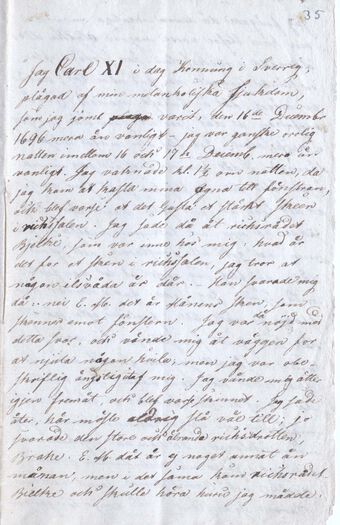 35
Jag Carl XI i dag Konung i Sverg,
plågad af min melankoliska sjukdom,
som jag som varit, den 16de December
1696 mera än vanligt – jag var ganske orolig
natten imellem 16 och 17de Decemb. mera än
vanligt. Jag vaknade kl. 1½ om natten, då
jag kom at kasta mina ögna till fönstren,
och blef varse at det gafs et starkt Skeen
i rickssalen. Jag sade då åt ricksrådet
Bjelke, som var inne hos mig. hvad är
det för et sken i rickssalen, jag tror at
någon elsvåda är där. – Han svarade mig
då.. nei E. M. det är Månens sken, som
skinner emot fönstern. Jag var då nöjd med
detta svar, och vände mig åt väggen för
at njuta någon hvile, men jag var obe-
skriflig ängsligitaf mig. Jag vände mig åtte
igjen fremåt och blef varse skinnet. Jag sade
åte, här måste aldrig stå väl till; jo
svarade den store och älskande ricksdrotten,
Brahe. E. M. då är y noget annat än
månan, men i det sama kom ricksrådet
Bielke och skulle höra huru jag mådde.